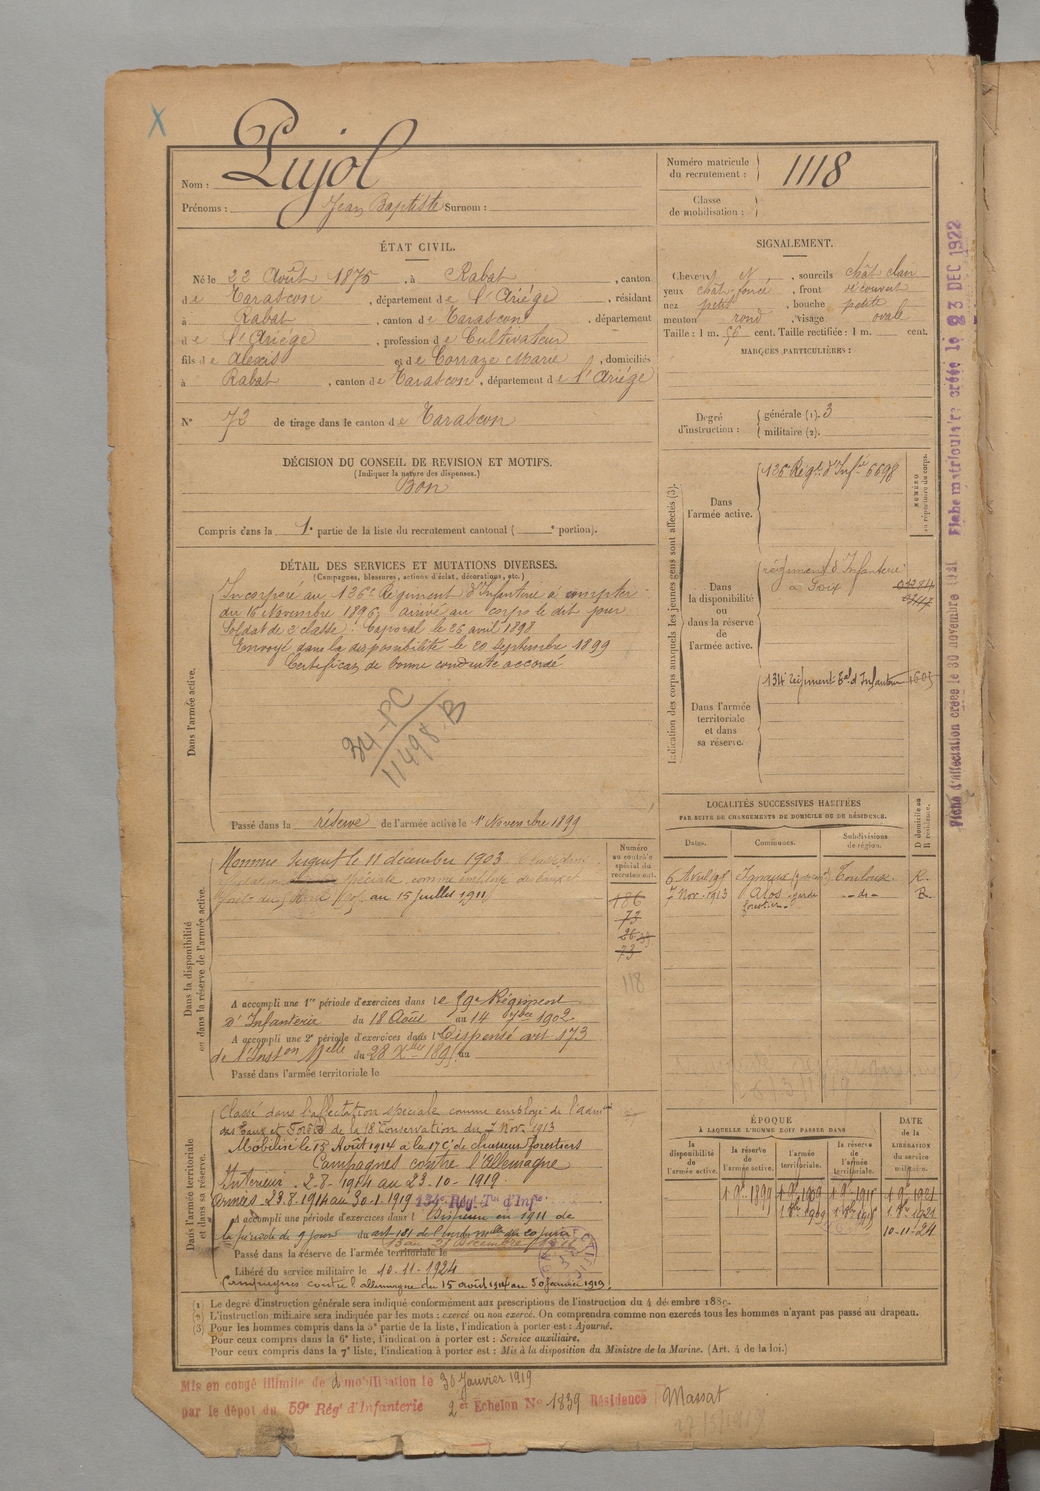 Pujol
Nom :
Prénoms : Jean Baptiste Surnom :
Numéro matricule
du recrutement : 1118
Classe
de mobilisation :
ÉTAT CIVIL.
Né le 22 Août 1875, à Rabat, canton
de Tarascon, département de l'Ariége, résidant
à Rabat, canton de Tarascon, département
de l'Ariége, profession de Cultivateur
fils de Alexis et de Corraze Marie, domiciliés
à Rabat, canton de Tarascon, département de l'Ariége
N° 73 de tirage dans le canton de Tarascon
SIGNALEMENT.
Cheveux N, sourcils chât clair
yeux chât foncé, front découvert
nez petit, bouche petite
menton rond, visage ovale
Taille : 1 m. 56 cent. Taille rectifiée : 1 m. cent.
MARQUES PARTICULIÈRES :
Degré
d'instruction :
générale (1). 3
militaire (2).
DÉCISION DU CONSEIL DE REVISION ET MOTIFS.
(Indiquer la nature des dispenses.)
Bon
Compris dans la 1e partie de la liste du recrutement cantonal ( e portion).
DÉTAIL DES SERVICES ET MUTATIONS DIVERSES.
(Campagnes, blessures, actions d'éclat, décorations, etc.)
Dans l'armée active.
Incorporé au 126e Régiment d'Infanterie à compter
du 16 Novembre 1896, arrivé au corps le dit jour
Soldat de 2e classe. Caporal le 26 avril 1898
Envoyé dans la disponibilité le 20 Septembre 1899
Certificat de bonne conduite accordé
34-PC
11498 B
Passé dans la réserve de l'armée active le 1er Novembre 1899
Indication des corps auxquels les jeunes gens sont affectés (3).
Dans
l'armée active.
126 Régt d'Infie 6698
NUMÉRO
au répertoire du corps.
Dans
la disponibilité
ou
dans la réserve
de
l'armée active.
régiment d'Infanterie
à Foix
Dans l'armée
territoriale
et dans
sa réserve.
134 régiment Tal d'Infanterie
LOCALITÉS SUCCESSIVES HABITÉES
PAR SUITE DE CHANGEMENTS DE DOMICILE OU DE RÉSIDENCE.
Dates.
Communes.
Subdivisions
de région.
D domicile ou
R résidence.
Toulouse R.
7 Nov. 1913 Alos garde -do- R.
forestier
Dans la disponibilité
ou dans la réserve de l'armée active.
Numéro
au contrôle
spécial du
recrutement.
Nommé Sergent le 11 décembre 1903
au 15 juillet 1911
186
73
73
118
A accompli une 1re période d'exercices dans le 59e Régiment
d'Infanterie du 18 Août au 14 7bre 1902
A accompli une 2e période d'exercices dans l Dispensé art 173
de l'Inston Melle du 28 Xbre 1895 au
Passé dans l'armée territoriale le
Dans l'armée territoriale
et dans sa réserve.
Classé dans l'affectation spéciale comme employé de l'admon
des Eaux et Forêts de la 18e Conservation du 7 Nov. 1913
Mobilisé le 15 Août 1914 à la 17e Cie de Chasseurs forestiers
Campagnes contre l'Allemagne
Intérieur. 2-8-1914 au 23-10-1919.
134e Rég. Tal d'Infie.
A accompli une période d'exercices dans l Dispensé en 1911 de
la période de 9 jours du art 181 de l'instr melle du 20 juin
Passé dans la réserve de l'armée territoriale le
Libéré du service militaire le 10-11-1924
Campagnes contre l'allemagne du 15 août 1914 au 30 janvier 1919.
ÉPOQUE
À LAQUELLE L'HOMME DOIT PASSER DANS
DATE
de la
LIBÉRATION
du service
militaire.
la
disponibilité
de
l'armée active.
la réserve
de
l'armée active.
l'armée
territoriale.
la réserve
de
l'armée
territoriale.
1 9e 1899
1 9e 1909
1 9e 1915
1 9e 1921
10-11-24
(1) Le degré d'instruction générale sera indiqué conformément aux prescriptions de l'instruction du 4 décembre 1889.
(2) L'instruction militaire sera indiquée par les mots : exercé ou non exercé. On comprendra comme non exercés tous les hommes n'ayant pas passé au drapeau.
(3) Pour les hommes compris dans la 5e partie de la liste, l'indication à porter est : Ajourné.
Pour ceux compris dans la 6e liste, l'indication à porter est : Service auxiliaire.
Pour ceux compris dans la 7e liste, l'indication à porter est : Mis à la disposition du Ministre de la Marine. (Art. 4 de la loi.)
Mis en congé illimité de démobilisation le 30 Janvier 1919
par le dépôt du 59e Régt d'Infanterie 2e Echelon No 1839 Résidence Massat
Fiche d'affectation créée le 30 novembre 1921 Fiche matriculaire créée le 23 DEC 1922